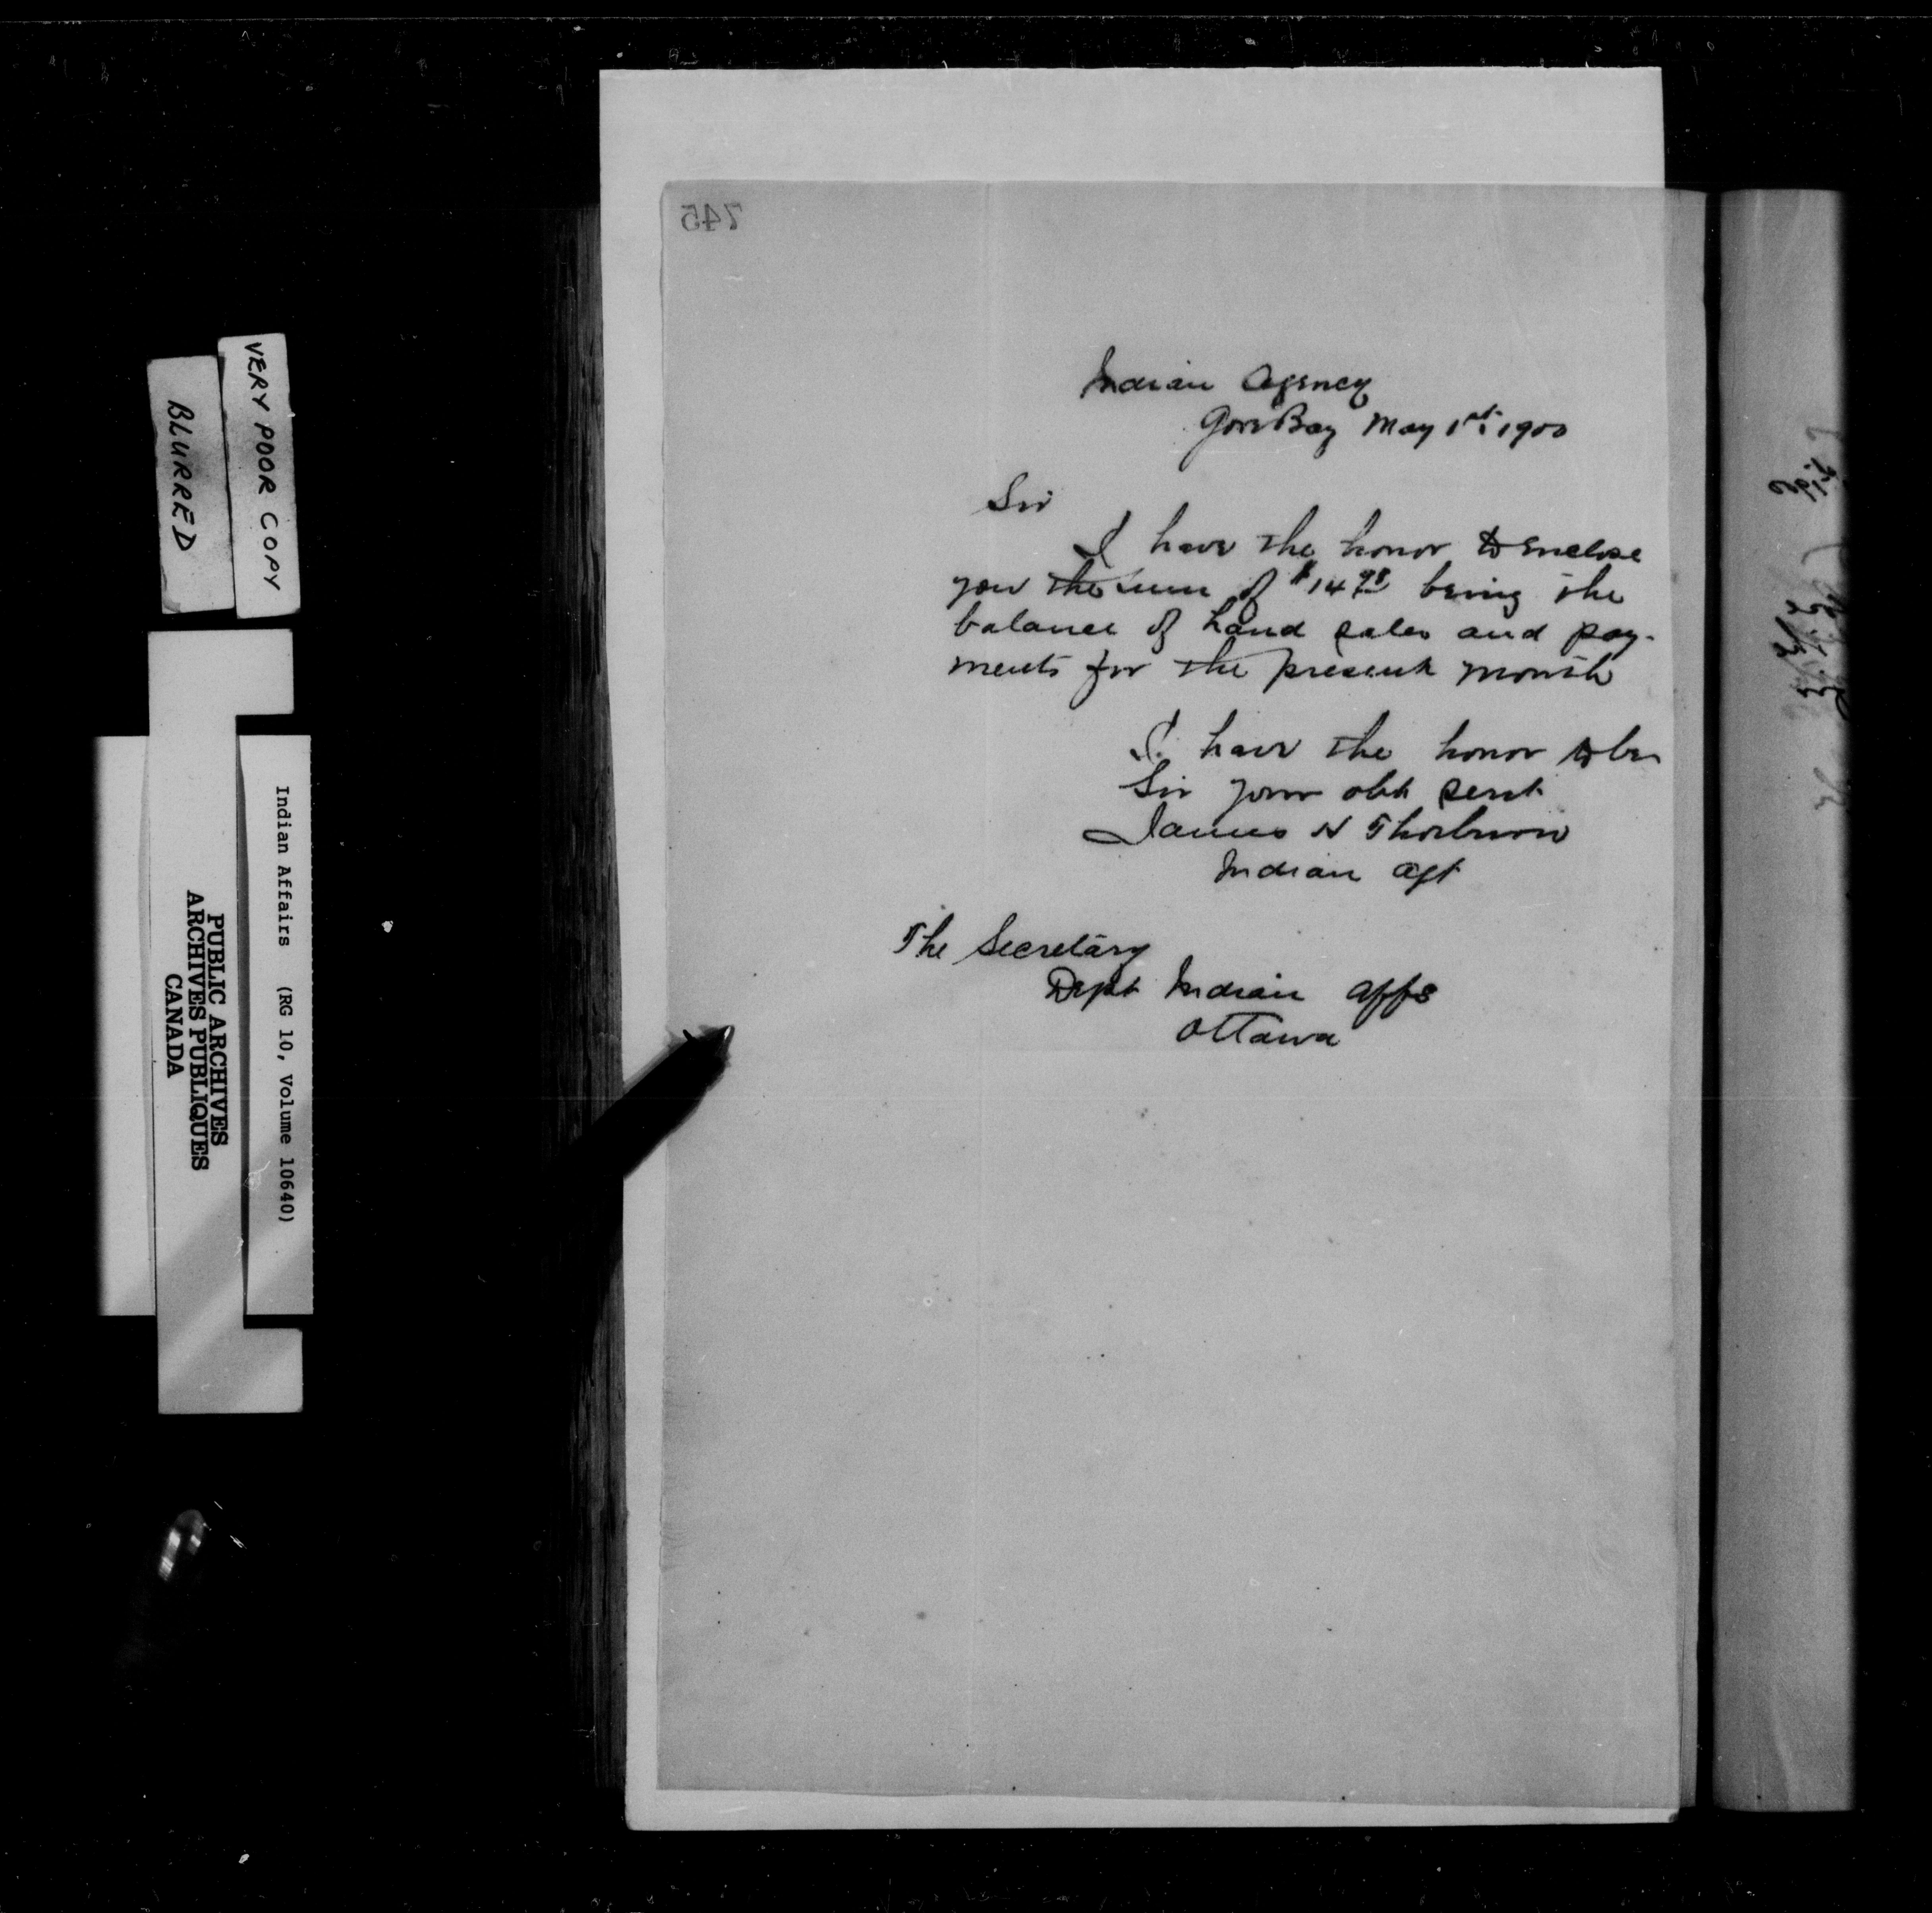 745
Indian Agency
Gore Bay May 1st 1900
Sir
I have the honor to enclose
you the sum of $14 98 being the
balance of Land sales and pay-
ments for the present month
I have the honor to be
Sir your obt servt
James H Thorburn
Indian Agt
The Secretary
Dept Indian Affs
Ottawa
VERY POOR COPY
BLURRED
Indian Affairs (RG 10, Volume 10640)
PUBLIC ARCHIVES
ARCHIVES PUBLIQUES
CANADA